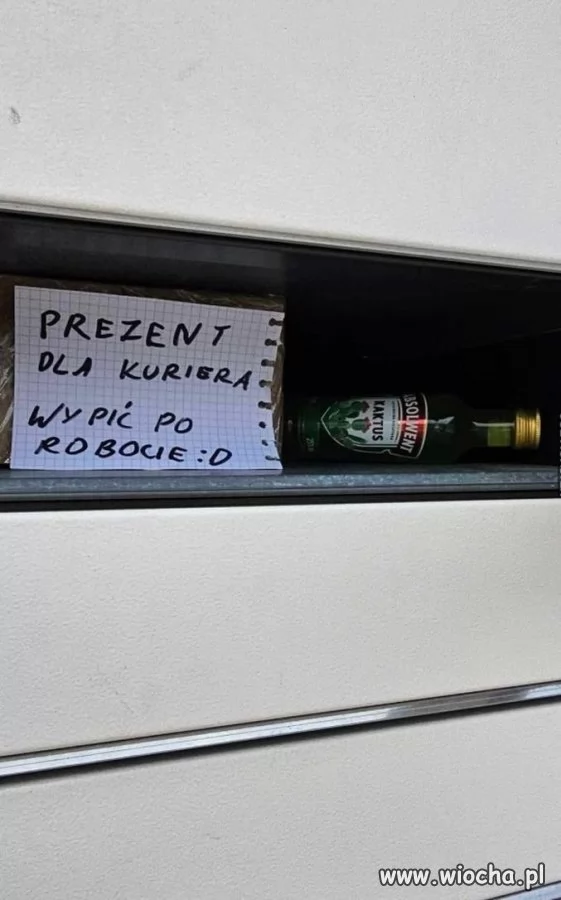 PREZENT
DLA KURIERA
WYPIĆ PO
ROBOCIE :D
ABSOLWENT
KAKTUS
www.wiocha.pl